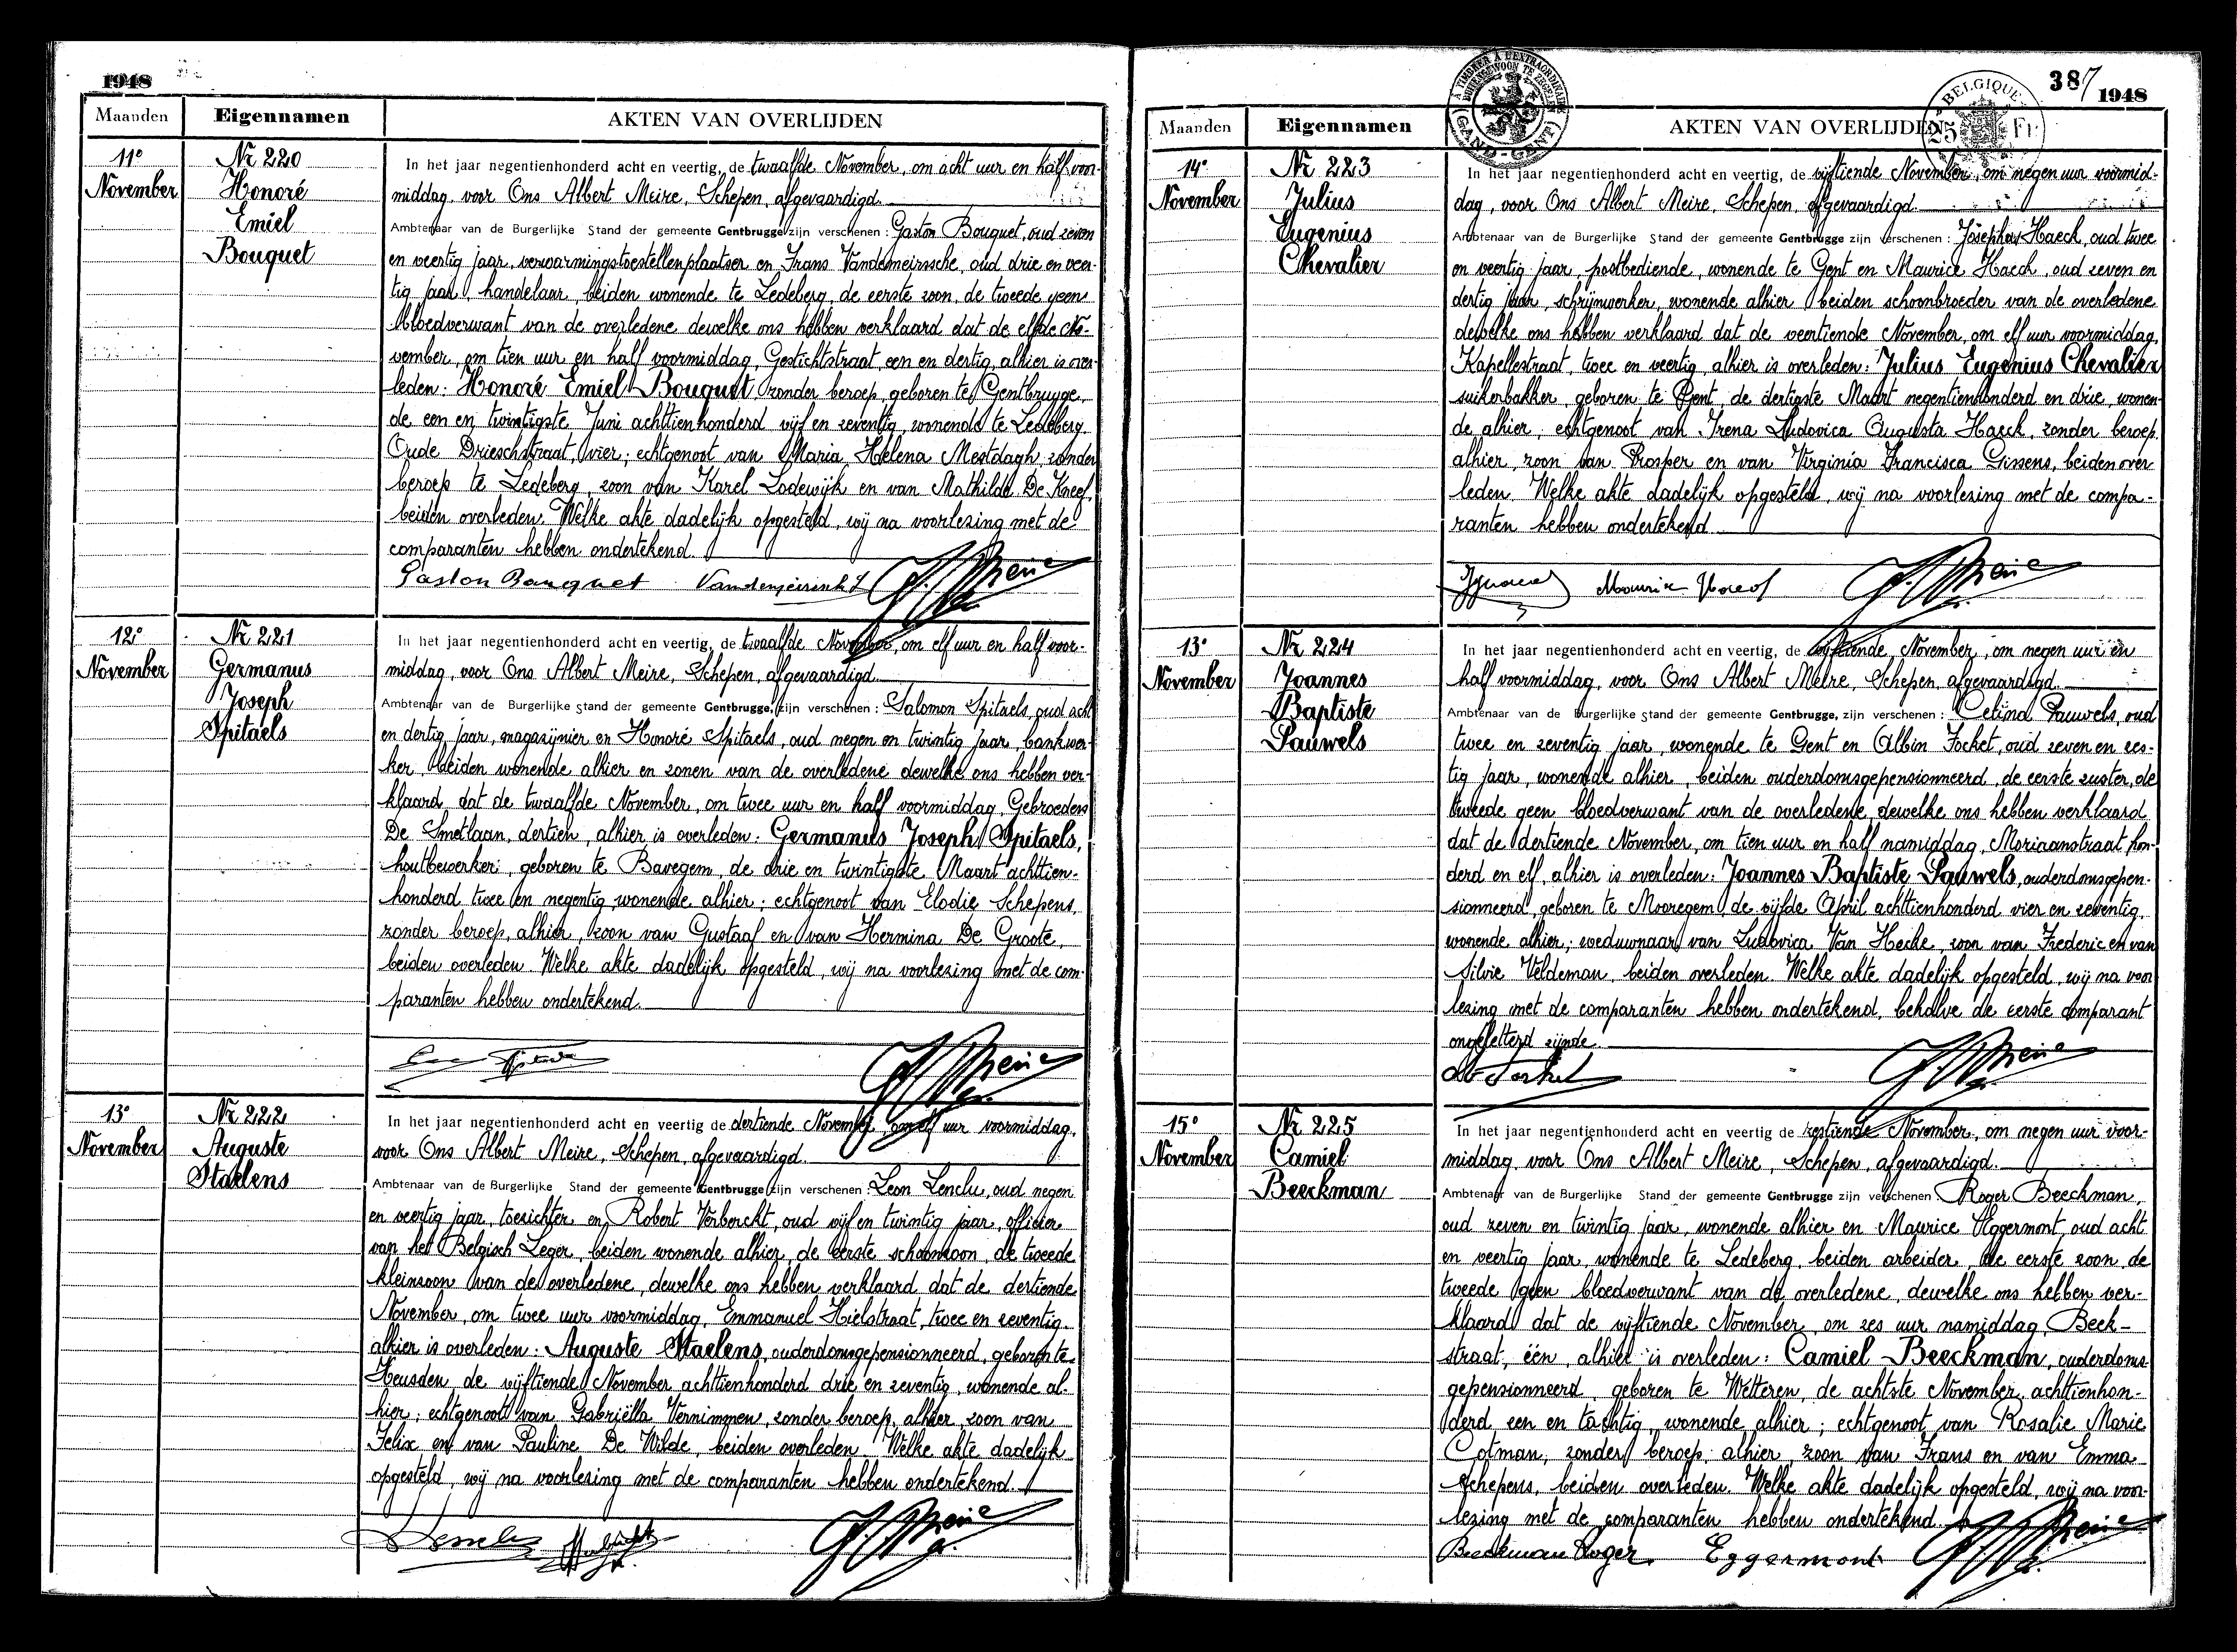 1948
Maanden
Eigennamen
AKTEN VAN OVERLIJDEN
11e
November
Nr 220
Honoré
Emiel
Bouquet
In het jaar negentienhonderd acht en veertig, de twaalfde November, om acht uur en half voor-
middag, voor Ons Albert Meire, Schepen, afgevaardigd
Ambtenaar van de Burgerlijke Stand der gemeente Gentbrugge zijn verschenen: Gaston Bouquet, oud zeven
en veertig jaar, verwarmingstoestellenplaatser en Frans Vandemeirssche, oud drie en veer-
tig jaar, handelaar, beiden wonende te Ledeberg, de eerste zoon, de tweede geen
bloedverwant van de overledene dewelke ons hebben verklaard dat de elfde No-
vember, om tien uur en half voormiddag, Gestichtstraat, een en dertig, alhier is over-
leden: Honoré Emiel Bouquet zonder beroep, geboren te Gentbrugge,
de een en twintigste Juni achttienhonderd vijf en zeventig, wonende te Ledeberg,
Oude Drieschstraat, vier; echtgenoot van Maria Helena Mestdagh, zonder
beroep te Ledeberg, zoon van Karel Lodewijk en van Mathilde De Kneef,
beiden overleden. Welke akte dadelijk opgesteld, wij na voorlezing met de
comparanten hebben ondertekend.
Gaston Bouquet
12e
November
Nr 221
Germanus
Joseph
Spitaels
In het jaar negentienhonderd acht en veertig, de twaalfde November, om elf uur en half voor-
middag, voor Ons Albert Meire, Schepen, afgevaardigd
Ambtenaar van de Burgerlijke Stand der gemeente Gentbrugge, zijn verschenen: Salomon Spitaels, oud acht
en dertig jaar, magazijnier en Honoré Spitaels, oud negen en twintig jaar, bankwer-
ker, beiden wonende alhier en zonen van de overledene dewelke ons hebben ver-
klaard dat de twaalfde November, om twee uur en half voormiddag, Gebroeders
De Smetlaan, dertien, alhier is overleden: Germanus Joseph Spitaels,
houtbewerker, geboren te Bavegem, de drie en twintigste Maart achttien-
honderd twee en negentig, wonende alhier; echtgenoot van Elodie Schepens,
zonder beroep, alhier, zoon van Gustaaf en van Hermina De Groote,
beiden overleden. Welke akte dadelijk opgesteld, wij na voorlezing met de com-
paranten hebben ondertekend.
13e
November
Nr 222
Auguste
Staelens
In het jaar negentienhonderd acht en veertig de dertiende November, om elf uur voormiddag,
voor Ons Albert Meire, Schepen, afgevaardigd.
Ambtenaar van de Burgerlijke Stand der gemeente Gentbrugge zijn verschenen: Leon Lenclu, oud negen
en veertig jaar, toezichter en Robert Verberckt, oud vijf en twintig jaar, officier
van het Belgisch Leger, beiden wonende alhier, de eerste schoonzoon, de tweede
kleinzoon van de overledene, dewelke ons hebben verklaard dat de dertiende
November, om twee uur voormiddag, Emmanuel Hielstraat, twee en zeventig,
alhier is overleden: Auguste Staelens, ouderdomsgepensionneerd, geboren te
Heusden, de vijftiende November achttienhonderd drie en zeventig, wonende al-
hier; echtgenoot van Gabriëlla Vernimmen, zonder beroep, alhier, zoon van
Felix en van Pauline De Wilde, beiden overleden. Welke akte dadelijk
opgesteld, wij na voorlezing met de comparanten hebben ondertekend.
387
1948
BELGIQUE
25 Fr
GAND-GENT
Maanden
Eigennamen
AKTEN VAN OVERLIJDEN
14e
November
Nr 223
Julius
Eugenius
Chevalier
In het jaar negentienhonderd acht en veertig, de vijftiende November, om negen uur voormid-
dag, voor Ons Albert Meire, Schepen, afgevaardigd
Ambtenaar van de Burgerlijke Stand der gemeente Gentbrugge zijn verschenen: Josephus Haeck, oud twee
en veertig jaar, postbediende, wonende te Gent en Maurice Haeck, oud zeven en
dertig jaar, schrijnwerker, wonende alhier, beiden schoonbroeder van de overledene
dewelke ons hebben verklaard dat de veertiende November, om elf uur voormiddag,
Kapellestraat, twee en veertig, alhier is overleden: Julius Eugenius Chevalier
suikerbakker, geboren te Gent, de dertigste Maart negentienhonderd en drie, wonen-
de alhier; echtgenoot van Irena Ludovica Augusta Haeck, zonder beroep,
alhier, zoon van Prosper en van Virginia Francisca Gissens, beiden over-
leden. Welke akte dadelijk opgesteld, wij na voorlezing met de compa-
ranten hebben ondertekend.
13e
November
Nr 224
Joannes
Baptiste
Pauwels
In het jaar negentienhonderd acht en veertig, de vijftiende November, om negen uur en
half voormiddag, voor Ons Albert Meire, Schepen, afgevaardigd.
Ambtenaar van de Burgerlijke Stand der gemeente Gentbrugge, zijn verschenen: Celina Pauwels, oud
twee en zeventig jaar, wonende te Gent en Albin Focket, oud zeven en zes-
tig jaar, wonende alhier, beiden ouderdomsgepensionneerd, de eerste zuster, de
tweede geen bloedverwant van de overledene, dewelke ons hebben verklaard
dat de dertiende November, om tien uur en half namiddag, Moriaanstraat, hon-
derd en elf, alhier is overleden: Joannes Baptiste Pauwels, ouderdomsgepen-
sionneerd, geboren te Mooregem, de vijfde April achttienhonderd vier en zeventig,
wonende alhier; weduwnaar van Ludovica Van Hecke, zoon van Frederic en van
Silvie Veldeman, beiden overleden. Welke akte dadelijk opgesteld, wij na voor-
lezing met de comparanten hebben ondertekend, behalve de eerste comparant
ongeletterd zijnde.
15e
November
Nr 225
Camiel
Beeckman
In het jaar negentienhonderd acht en veertig de zestiende November, om negen uur voor-
middag, voor Ons Albert Meire, Schepen, afgevaardigd.
Ambtenaar van de Burgerlijke Stand der gemeente Gentbrugge zijn verschenen Roger Beeckman,
oud zeven en twintig jaar, wonende alhier en Maurice Eggermont, oud acht
en veertig jaar, wonende te Ledeberg, beiden arbeider, de eerste zoon, de
tweede geen bloedverwant van de overledene, dewelke ons hebben ver-
klaard dat de vijftiende November, om zes uur namiddag, Beek-
straat, één, alhier is overleden: Camiel Beeckman, ouderdoms-
gepensionneerd, geboren te Wetteren, de achtste November achttienhon-
derd een en tachtig, wonende alhier; echtgenoot van Rosalie Marie
Cotman, zonder beroep, alhier, zoon van Frans en van Emma
Schepens, beiden overleden. Welke akte dadelijk opgesteld, wij na voor-
lezing met de comparanten hebben ondertekend.
Beeckman Roger. Eggermont